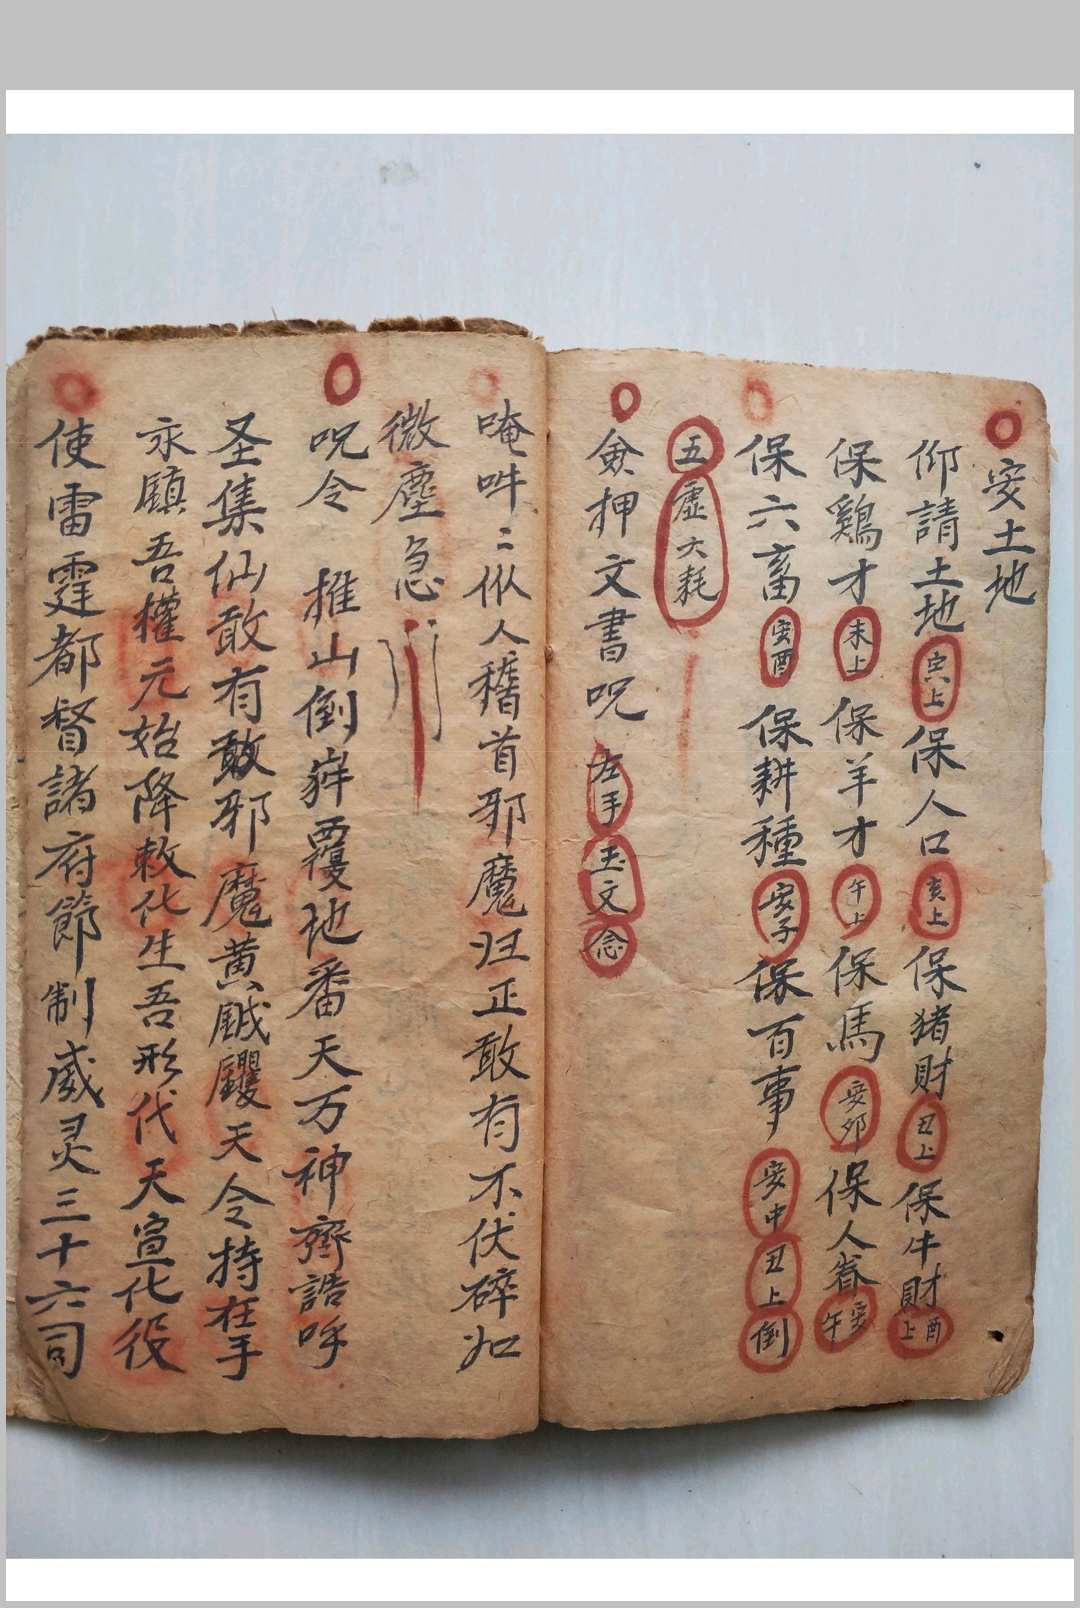 安土地
仰請土地寅上保人口亥上保猪財丑上保牛財酉上
保鷄才未上保羊才午上保馬安卯保人眷安午
保六畜安酉保耕種安子保百事安中丑上倒
五虛六耗
僉押文書咒左手玉文念
唵吽〻仙人稽首邪魔归正敢有不伏碎如
微塵急
咒令 推山倒𡶴覆地番天万神齊誥呼
圣集仙敢有敢邪魔黄鉞钁天令持在手
永鎮吾權元始降敕化生吾形代天宣化役
使雷霆都督諸府節制威灵三十六司